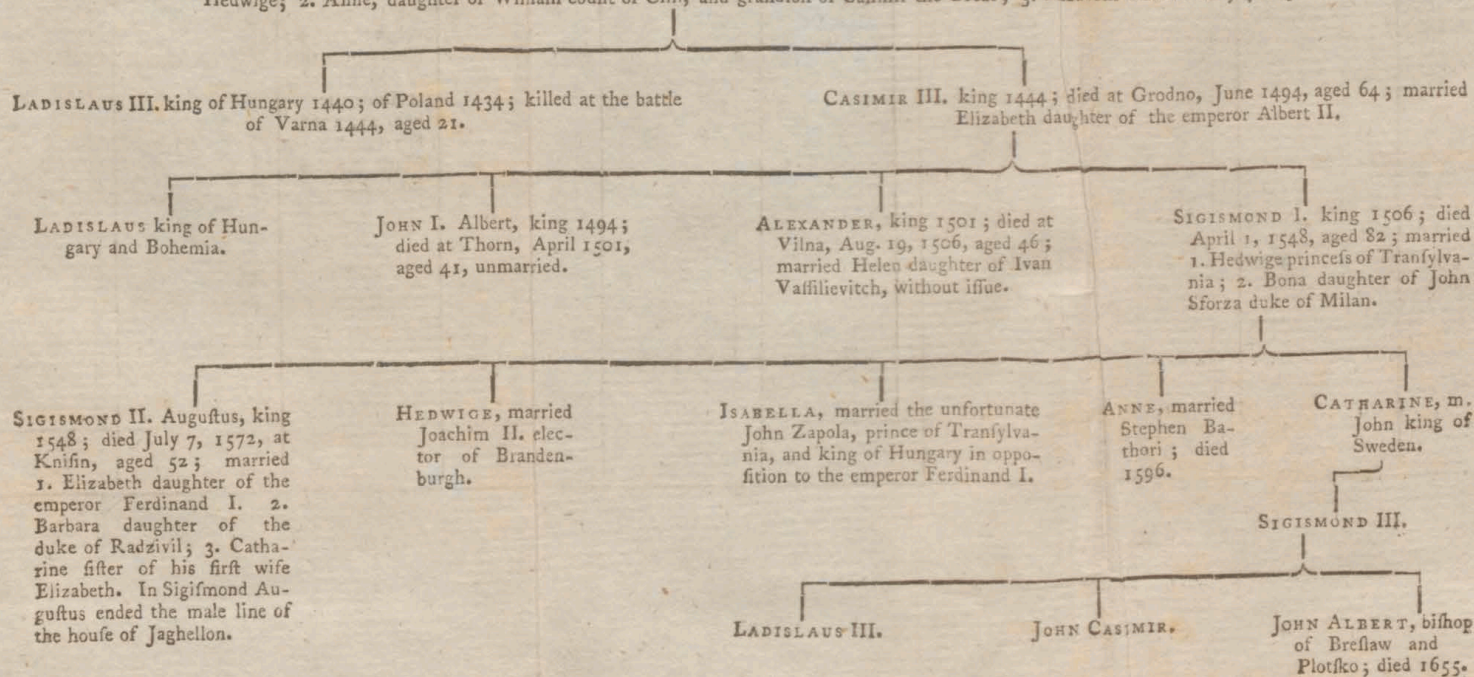 Hedwige; 2. Anne, daughter of William count of
LADISLAUS III. king of Hungary 1440; of Poland 1434; killed at the battle
of Varna 1444, aged 21.
CASIMIR III. king 1444; died at Grodno, June 1494, aged 64; married
Elizabeth daughter of the emperor Albert II.
LADISLAUS king of Hun-
gary and Bohemia.
JOHN I. Albert, king 1494;
died at Thorn, April 1501,
aged 41, unmarried.
ALEXANDER, king 1501; died at
Vilna, Aug. 19, 1506, aged 46;
married Helen daughter of Ivan
Vaſſilievitch, without iſſue.
SIGISMOND I. king 1506; died
April 1, 1548, aged 82; married
1. Hedwige princeſs of Tranſylva-
nia; 2. Bona daughter of John
Sforza duke of Milan.
SIGISMOND II. Auguſtus, king
1548; died July 7, 1572, at
Kniſin, aged 52; married
1. Elizabeth daughter of the
emperor Ferdinand I. 2.
Barbara daughter of the
duke of Radzivil; 3. Catha-
rine ſiſter of his firſt wife
Elizabeth. In Sigiſmond Au-
guſtus ended the male line of
the houſe of Jaghellon.
HEDWIGE, married
Joachim II. elec-
tor of Branden-
burgh.
ISABELLA, married the unfortunate
John Zapola, prince of Tranſylva-
nia, and king of Hungary in oppo-
ſition to the emperor Ferdinand I.
ANNE, married
Stephen Ba-
thori; died
1596.
CATHARINE, m.
John king of
Sweden.
SIGISMOND III.
LADISLAUS III.
JOHN CASIMIR.
JOHN ALBERT, biſhop
of Breſlaw and
Plotſko; died 1655.